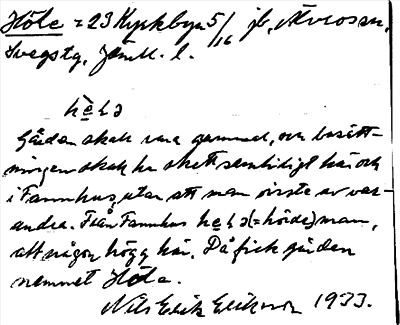 Höle = 23 Kyrkbyn 5/16 jb, Älvrosen,
Svegstg, Jämtl. l.
hèlə
Gården skall vara gammal, och bosätt-
ningen skall ha skett samtidigt här och
i Fannhus, utan att man visste av var-
andra. Från Fannhus (= hörde) man,
att någon högg här. På fick gården
namnet Höle.
Nils Erik Eriksson 1933.